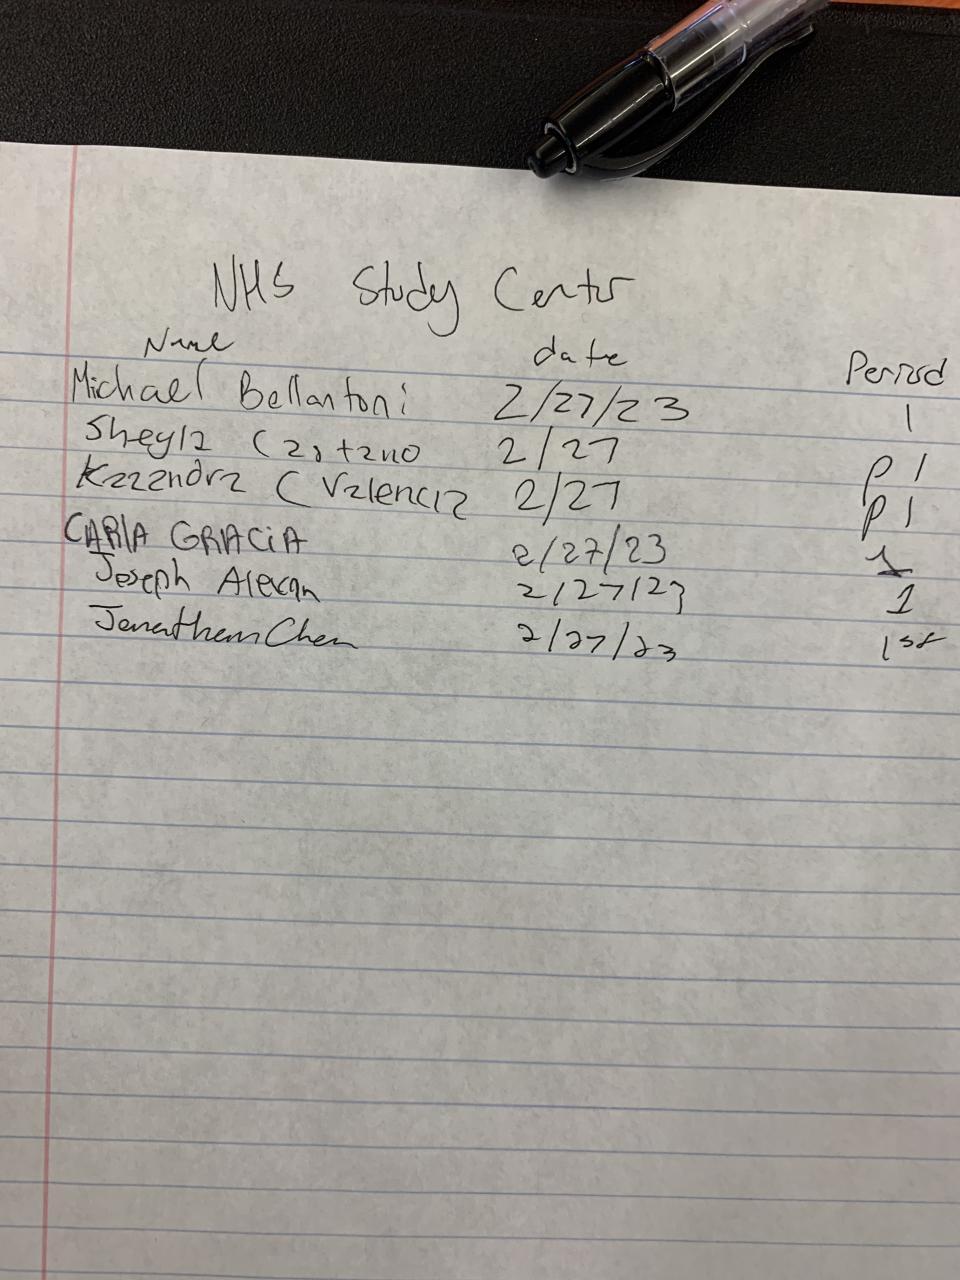 NHS Study Center
Name date Period
Michael Bellantoni 2/27/23 1
Sheyla 2/27 P 1
Kazandra C Valencia 2/27 P 1
CARLA GRACiA 2/27/23 1
Joseph Alexan 2/27/23 1
Jonathan Chen 2/27/23 1st